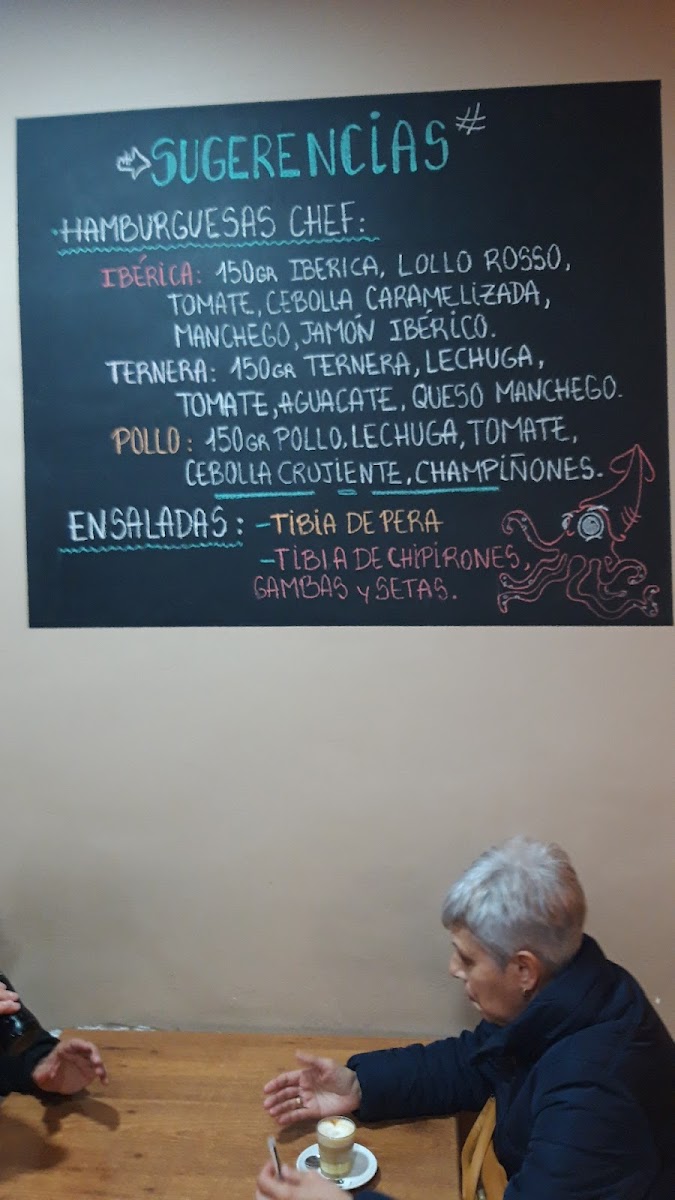 SUGERENCIAS #
HAMBURGUESAS CHEF:
IBÉRICA: 150GR IBERICA, LOLLO ROSSO,
TOMATE, CEBOLLA CARAMELIZADA,
MANCHEGO, JAMÓN IBÉRICO.
TERNERA: 150GR TERNERA, LECHUGA,
TOMATE, AGUACATE, QUESO MANCHEGO.
POLLO: 150GR POLLO, LECHUGA, TOMATE,
CEBOLLA CRUJIENTE, CHAMPIÑONES.
ENSALADAS: - TIBIA DE PERA
- TIBIA DE CHIPIRONES,
GAMBAS Y SETAS.